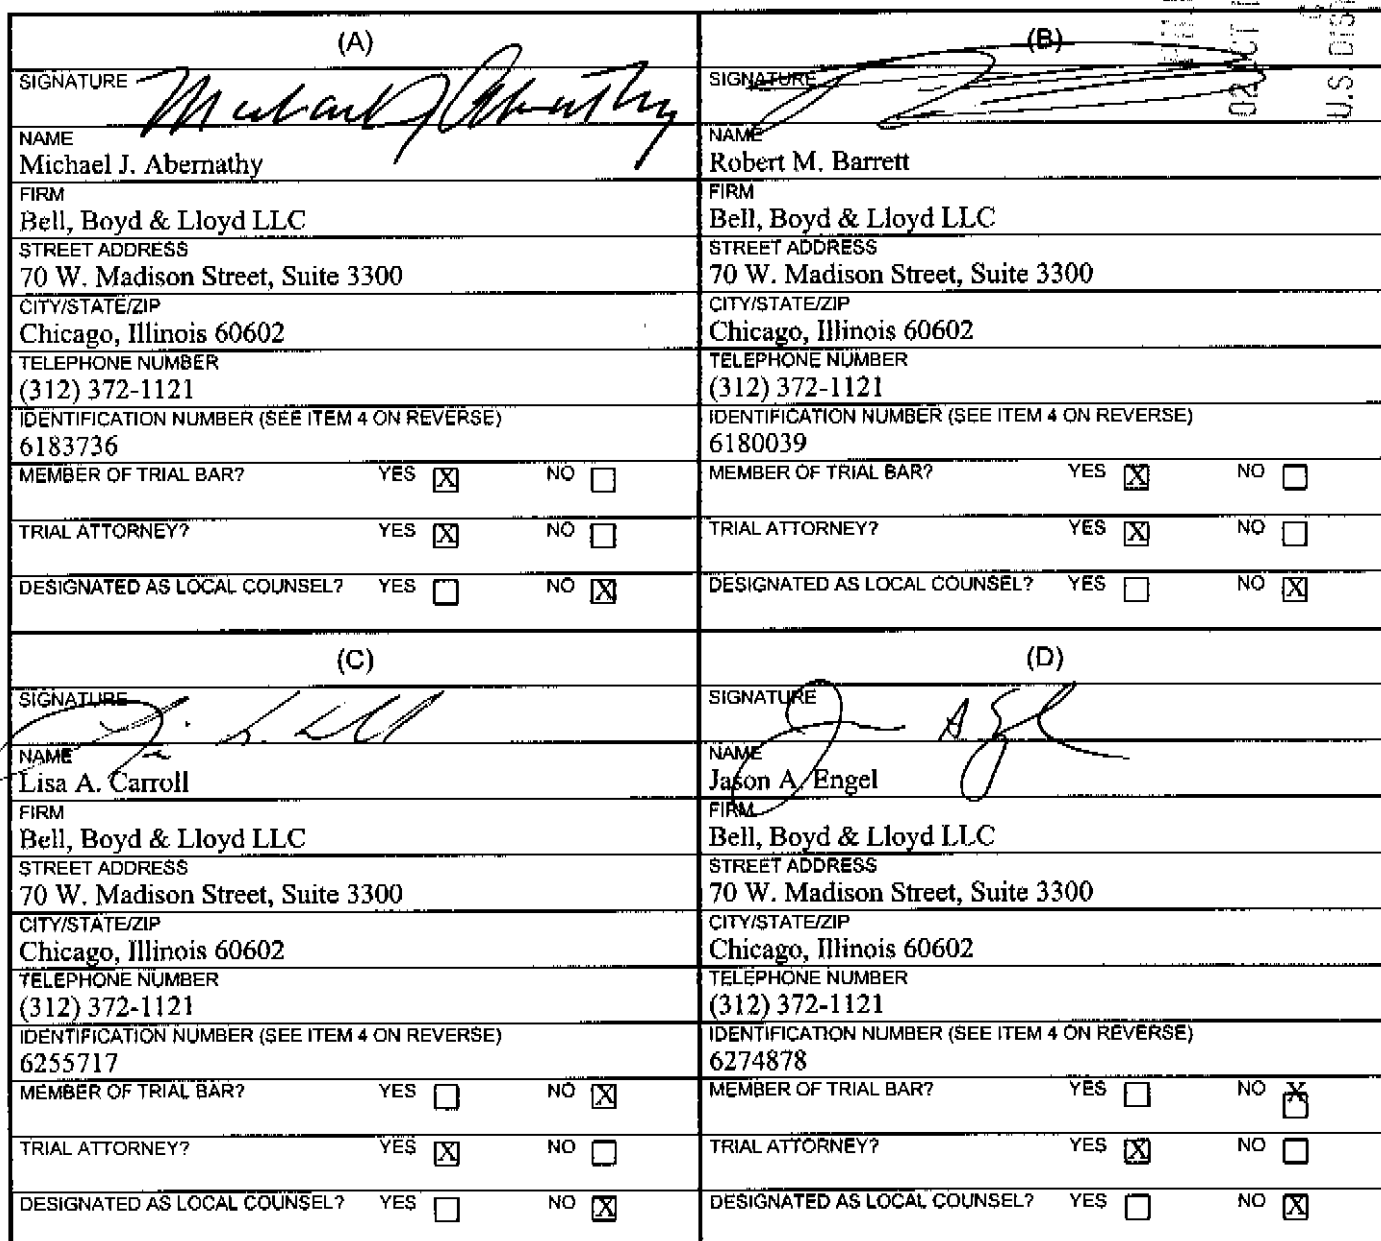 (A)
SIGNATURE Michael J Abernathy
NAME
Michael J. Abernathy
FIRM
Bell, Boyd & Lloyd LLC
STREET ADDRESS
70 W. Madison Street, Suite 3300
CITY/STATE/ZIP
Chicago, Illinois 60602
TELEPHONE NUMBER
(312) 372-1121
IDENTIFICATION NUMBER (SEE ITEM 4 ON REVERSE)
6183736
MEMBER OF TRIAL BAR? YES X NO
TRIAL ATTORNEY? YES X NO
DESIGNATED AS LOCAL COUNSEL? YES NO X
(B)
SIGNATURE
NAME
Robert M. Barrett
FIRM
Bell, Boyd & Lloyd LLC
STREET ADDRESS
70 W. Madison Street, Suite 3300
CITY/STATE/ZIP
Chicago, Illinois 60602
TELEPHONE NUMBER
(312) 372-1121
IDENTIFICATION NUMBER (SEE ITEM 4 ON REVERSE)
6180039
MEMBER OF TRIAL BAR? YES X NO
TRIAL ATTORNEY? YES X NO
DESIGNATED AS LOCAL COUNSEL? YES NO X
(C)
SIGNATURE
NAME
Lisa A. Carroll
FIRM
Bell, Boyd & Lloyd LLC
STREET ADDRESS
70 W. Madison Street, Suite 3300
CITY/STATE/ZIP
Chicago, Illinois 60602
TELEPHONE NUMBER
(312) 372-1121
IDENTIFICATION NUMBER (SEE ITEM 4 ON REVERSE)
6255717
MEMBER OF TRIAL BAR? YES NO X
TRIAL ATTORNEY? YES X NO
DESIGNATED AS LOCAL COUNSEL? YES NO X
(D)
SIGNATURE
NAME
Jason A. Engel
FIRM
Bell, Boyd & Lloyd LLC
STREET ADDRESS
70 W. Madison Street, Suite 3300
CITY/STATE/ZIP
Chicago, Illinois 60602
TELEPHONE NUMBER
(312) 372-1121
IDENTIFICATION NUMBER (SEE ITEM 4 ON REVERSE)
6274878
MEMBER OF TRIAL BAR? YES NO X
TRIAL ATTORNEY? YES X NO
DESIGNATED AS LOCAL COUNSEL? YES NO X
U.S. DIS